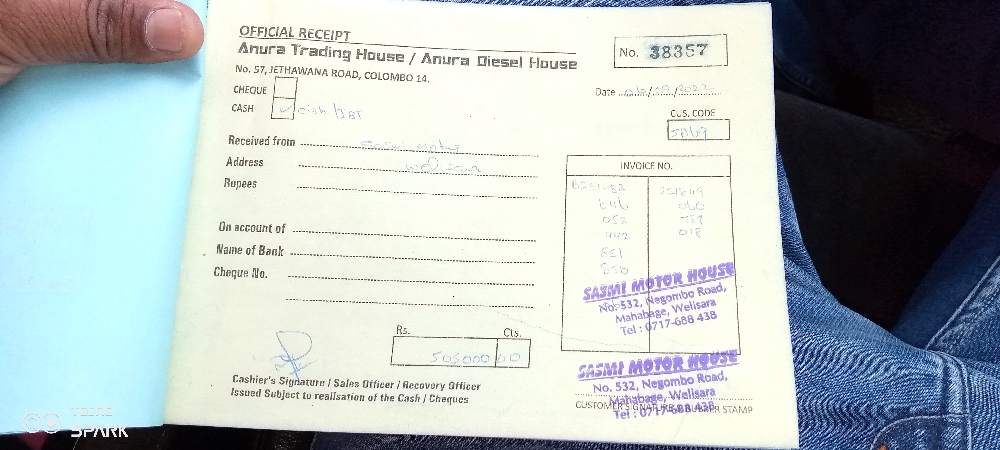 OFFICIAL RECEIPT
Anura Trading House / Anura Diesel House
No. 57, JETHAWANA ROAD, COLOMBO 14.
No. 38357
CHEQUE
CASH
Date
CUS. CODE
Received from
Address
Rupees
INVOICE NO.
On account of
Name of Bank
Cheque No.
SASMI MOTOR HOUSE
No. 532, Negombo Road,
Mahabage, Welisara
Tel : 0717-688 438
Rs. Cts.
505000 00
Cashier's Signature / Sales Officer / Recovery Officer
Issued Subject to realisation of the Cash / Cheques
SASMI MOTOR HOUSE
No. 532, Negombo Road,
Mahabage, Welisara
CUSTOMER SIGNATURE & RUBBER STAMP
Tel : 0717-688 438
TECNO
SPARK